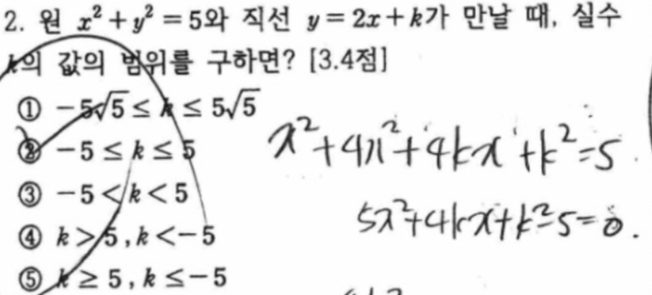 2. 원 x² + y² = 5와 직선 y = 2x + k가 만날 때, 실수
k의 값의 범위를 구하면? [3.4점]
① -5√5 ≤ k ≤ 5√5
② -5 ≤ k ≤ 5
③ -5 < k < 5
④ k > 5, k < -5
⑤ k ≥ 5, k ≤ -5
x² + 4x² + 4kx + k² = 5
5x² + 4kx + k² - 5 = 0.